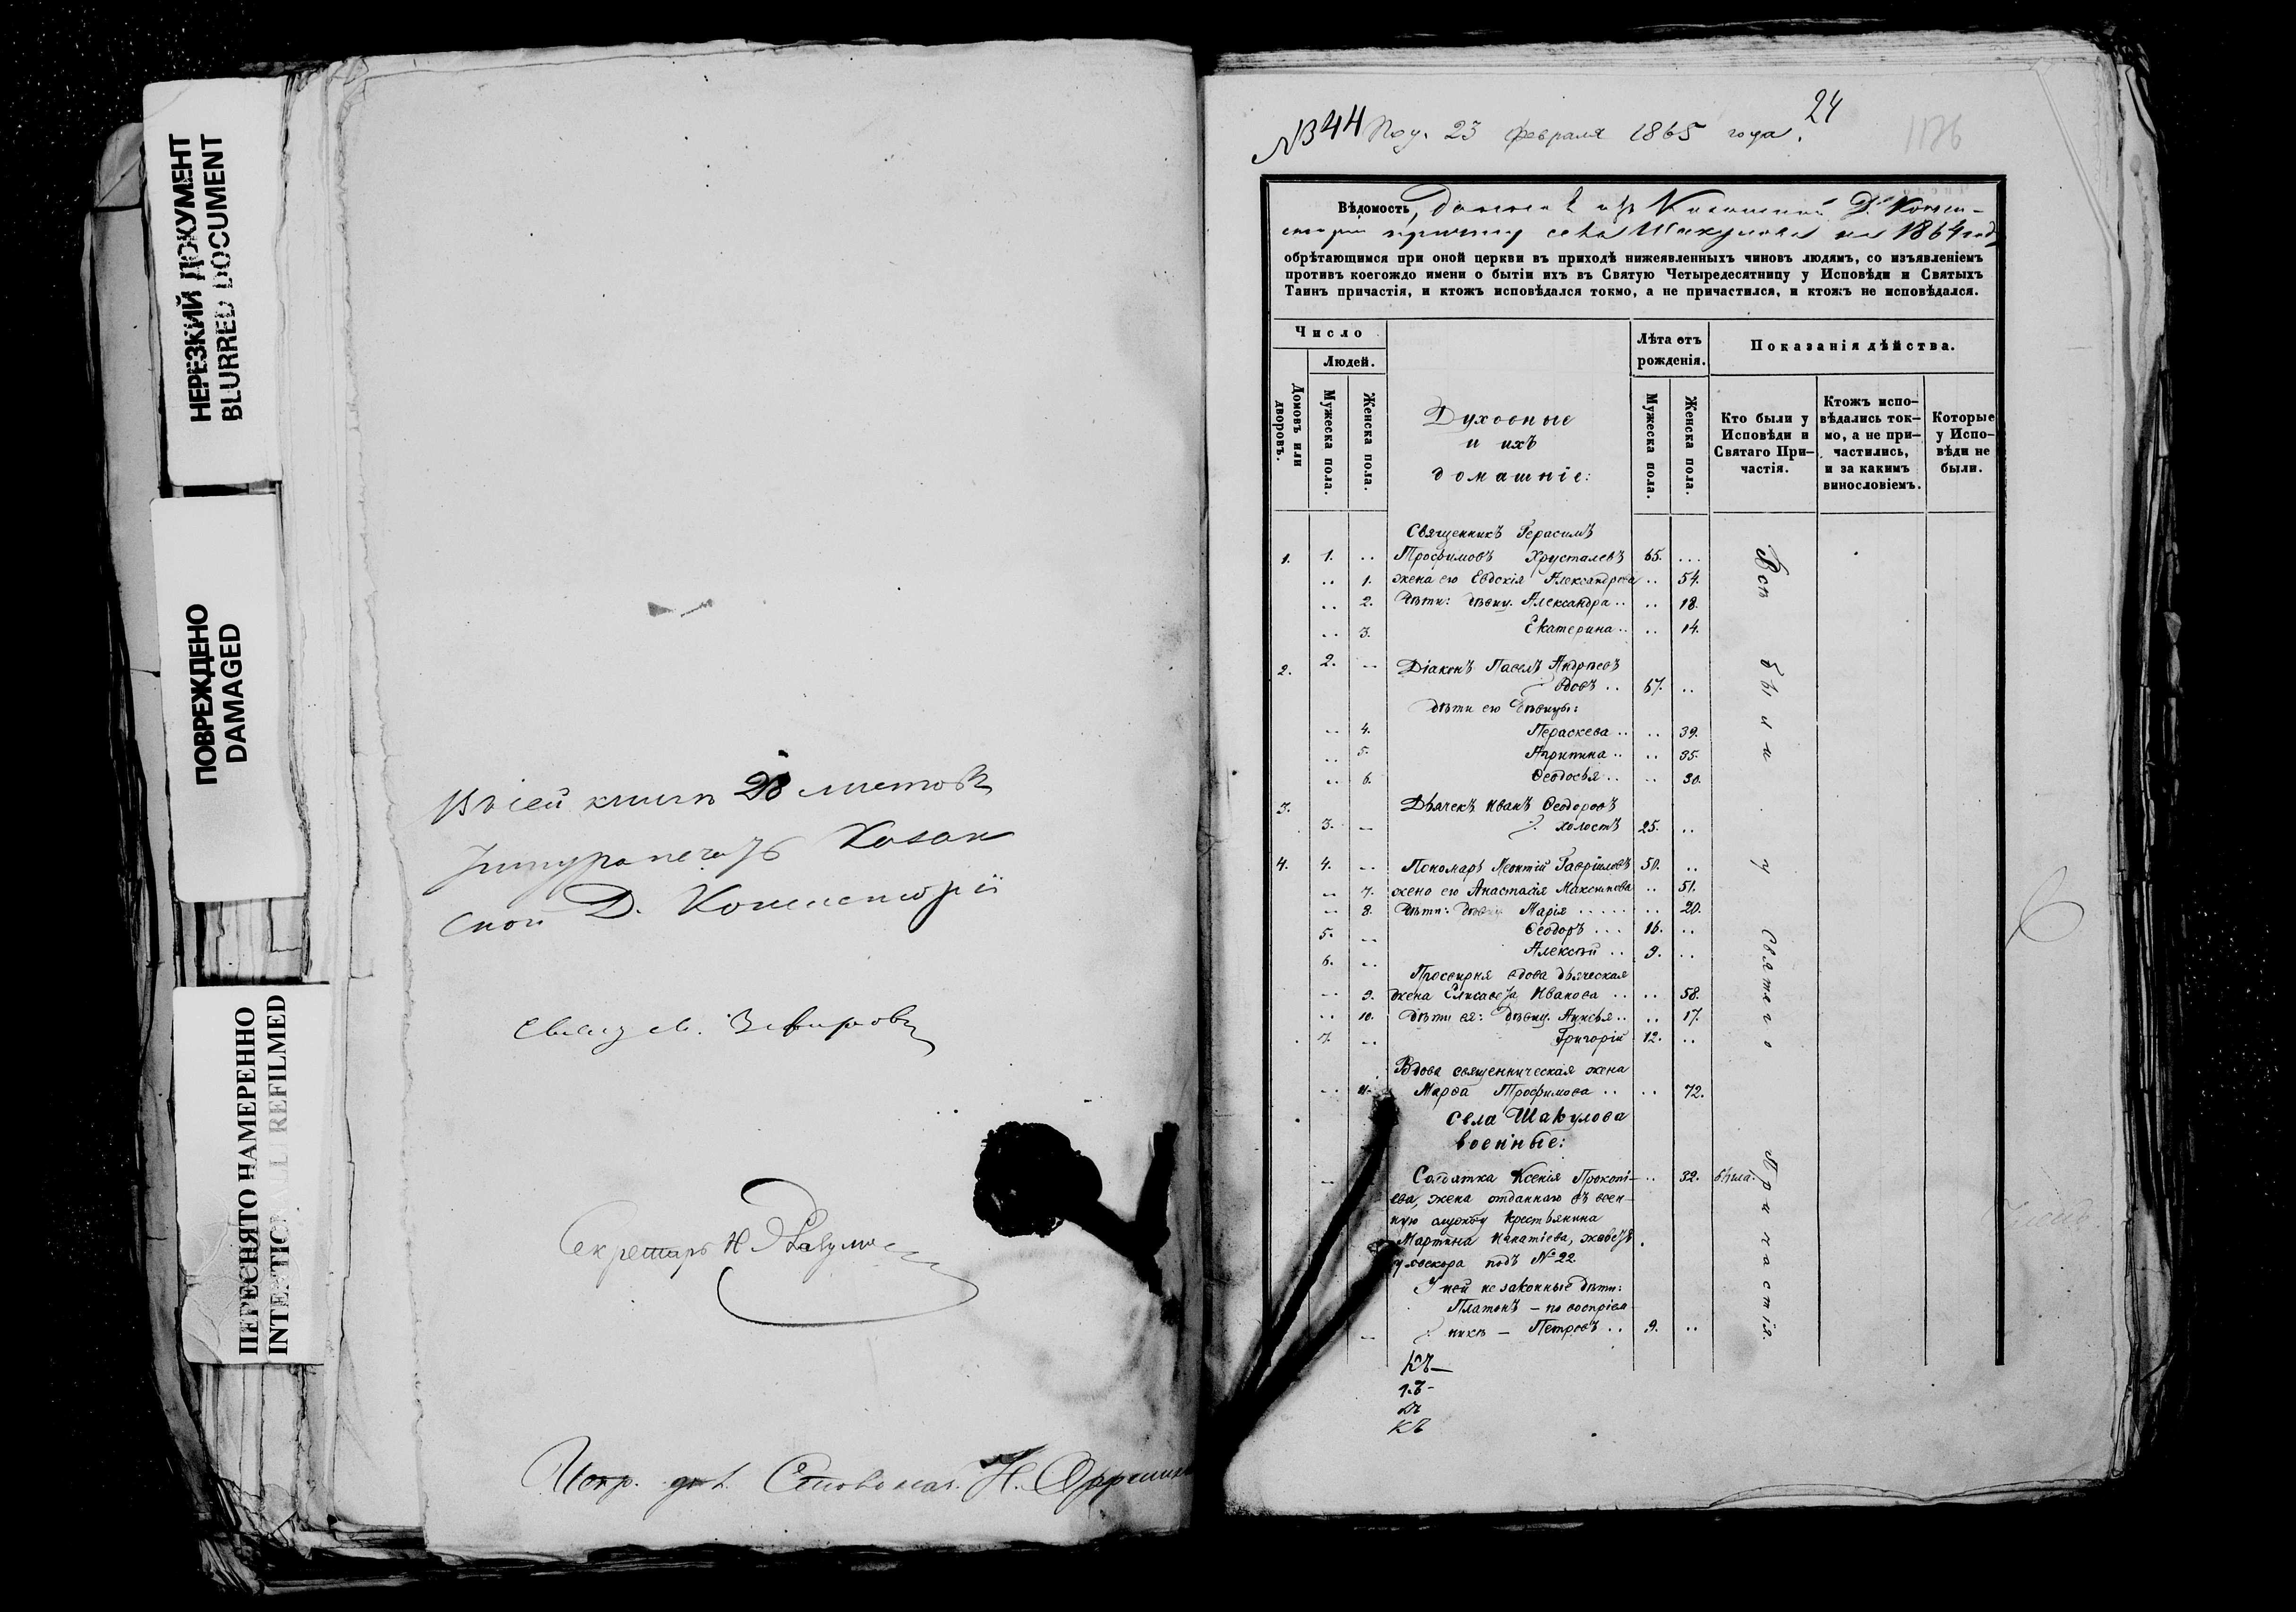 НЕРЕЗКИЙ ДОКУМЕНТ
BLURRED DOCUMENT
ПОВРЕЖДЕНО
DAMAGED
ПЕРЕСНЯТО НАМЕРЕННО
INTENTIONALLY REFILMED
Въ сей книгѣ 28 листовъ
Казан
ской Д. Консисторіи
Секретарь Н.
№ 44 Пол. 23 февраля 1865 года. 24
1176
Вѣдомость, данная изъ Казанской Д. Конси-
сторіи причту села Шакулова на 1864 годъ
обрѣтающимся при оной церкви въ приходѣ нижеявленныхъ чиновъ людямъ, со изъявленіемъ
противъ коегождо имени о бытіи ихъ въ Святую Четыредесятницу у Исповѣди и Святыхъ
Таинъ причастія, и ктожъ исповѣдался токмо, а не причастился, и ктожъ не исповѣдался.
Число
Людей.
Домовъ или дворовъ.
Мужеска пола.
Женска пола.
Духовные
и ихъ
домашніе:
Лѣта отъ
рожденія.
Мужеска пола.
Женска пола.
Показанія дѣйства.
Кто были у
Исповѣди и
Святаго При-
частія.
Ктожъ испо-
вѣдались ток-
мо, а не при-
частились,
и за какимъ
винословіемъ.
Которые
у Испо-
вѣди не
были.
Священникъ Герасимъ
1. 1. .. Трофимовъ Хрусталевъ 65. ...
.. 1. жена его Евдокія Александрова .. 54.
.. 2. Дѣти: дѣвиц. Александра .. .. 18.
.. 3. Екатерина .. .. 14.
2. 2. .. Діаконъ Павелъ Андреевъ
вдовъ .. 67. ..
дѣти его дѣвицы:
.. 4. Параскева .. .. 39.
.. 5. Агрипина .. .. 35.
.. 6. Ѳеодосья .. .. 30.
3. Дьячекъ Иванъ Ѳеодоровъ
3. .. холостъ 25. ..
4. 4. .. Пономарь Леонтій Гавріиловъ 50. ..
.. 7. жена его Анастасія Максимова .. 51.
.. 8. Дѣти: дѣвиц. Марія ..... .. 20.
5. .. Ѳеодоръ ... 16. ..
6. .. Алексѣй .. 9. ..
Просвирня вдова дьяческая
.. 9. жена Елисавета Иванова .. .. 58.
.. 10. дѣти ея: дѣвиц. Анисья .. .. 17.
7. .. Григорій 12. ..
Вдова священническая жена
.. 11. Марѳа Трофимова .. .. 72.
Села Шакулова
военные:
.. Солдатка Ксенія Прокопі- .. 32. была.
ева, жена отданнаго въ воен-
ную службу крестьянина
Мартина Игнатіева, живетъ
у свекора подъ № 22
У ней незаконные дѣти:
Платонъ – по воспріем
никѣ – Петровъ .. 9. ..
Всѣ были у Святаго Причастія.